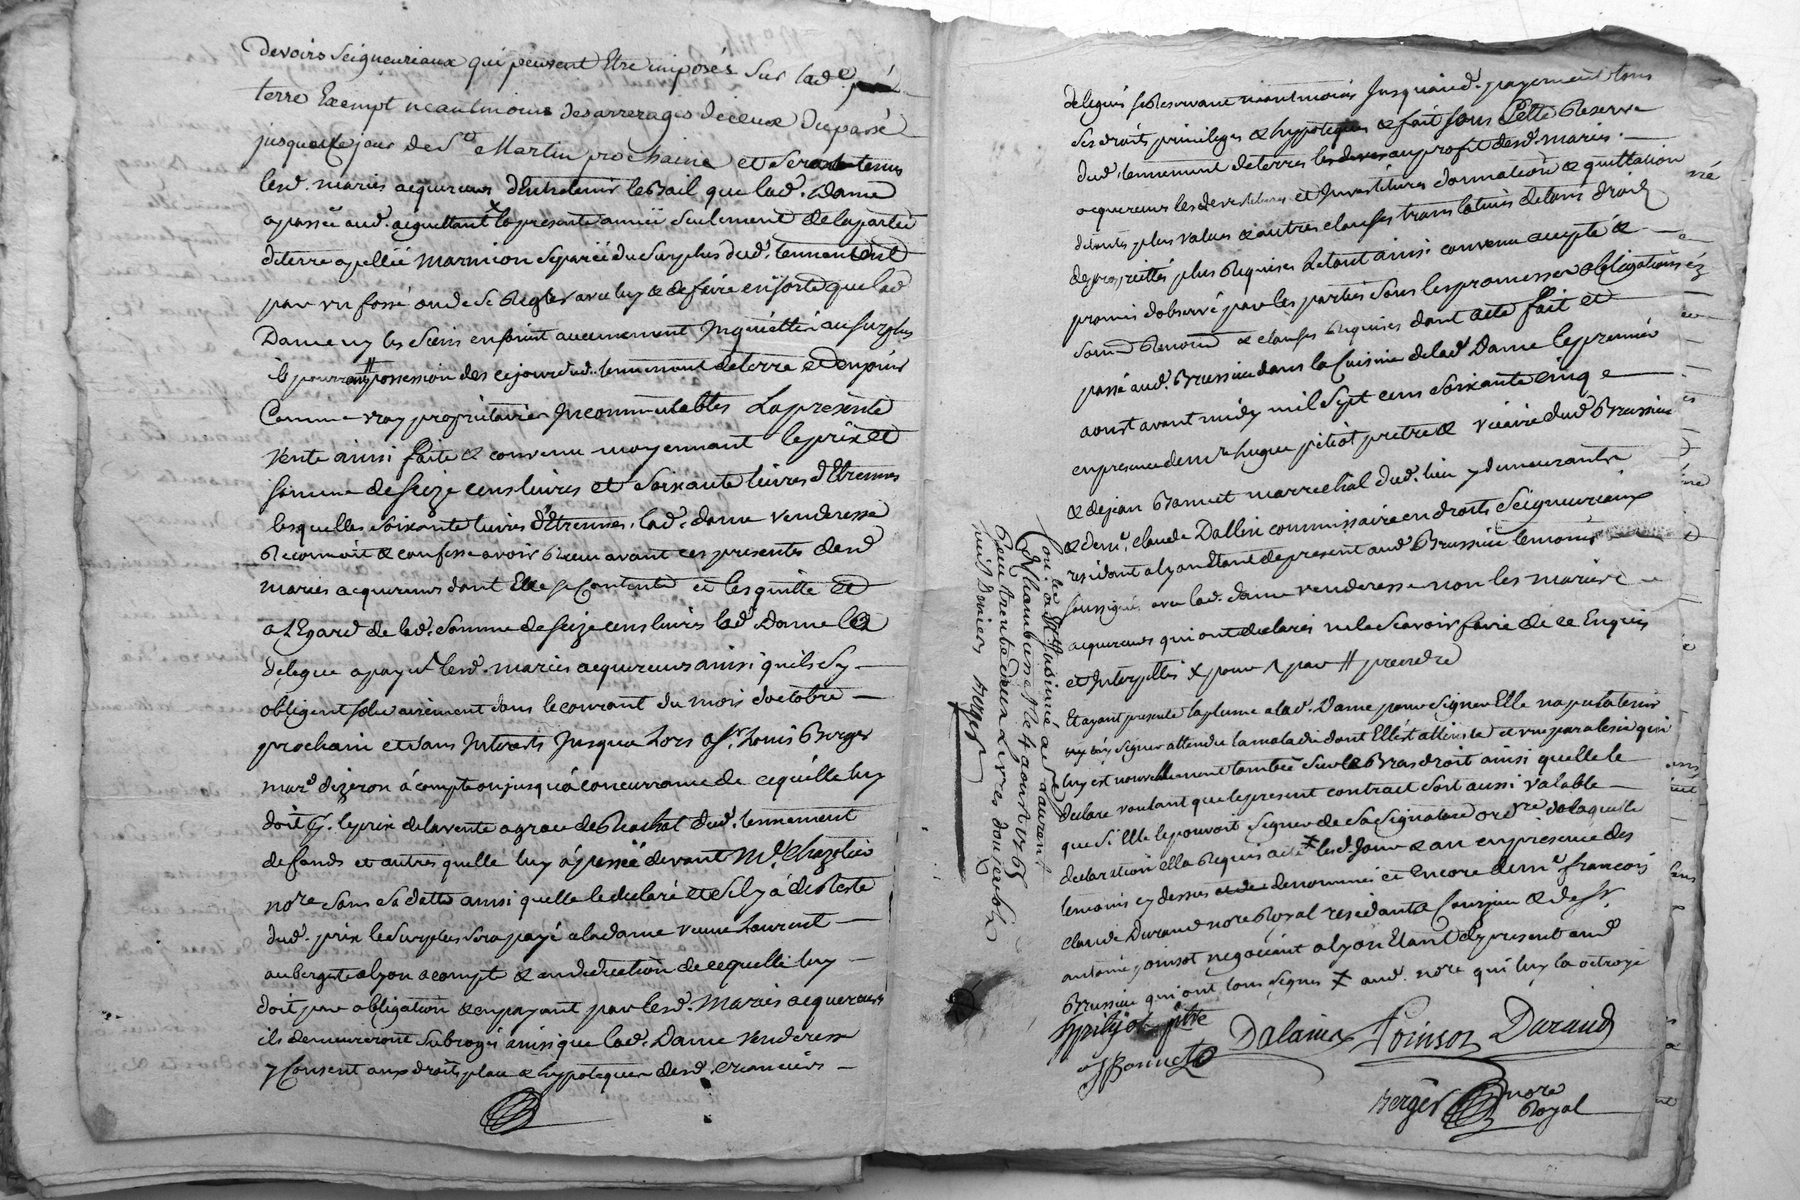 devoirs seigneuriaux qui peuvent Etre imposés sur lad.e
terre Exempt neautmoins desarrerages diceux du passé
jusqua ce jour de St Martin prochaine et seront tenus
lesd. mariés acquereurs d'Entretenir le bail que lad. Dame
a passée aud. aiguettant la presente année seulement de la partie
de terre apellée marnion separée du surplus dud. tennement
par un fossé ou de se Regler avec luy & de faire ensorte que lad
Dame ny les siens en soint aucunement Inquiettés au surplus
ils pourront possession des ce jour dud. tennement de terre et den jouir
Comme vray proprietaires Incommutables La presente
vente ainsi faitte & convenu moyennant le prix et
somme de seize cens livres et soixante livres d'Etrennes
lesquelles soixante livres d'Etrennes, lad. dame venderesse
Reconnoit & confesse avoir Receu avant ces presentes desd
mariés acquereurs dont Elle se Contente et les quitte et
a L'Egard de lad. somme de seize cens livres lad. Dame les
delegue a payer lesd. mariés acquereurs ainsi quils sy
obligent solidairement dans le courant du mois doctobre
prochain et sans Interests Jusqua Lors a sr Louis Berger
mard dizeron á compte ou jusquá concurrance de ce quélle luy
doit le prix de la vente a grace de Rachat dud. tennement
de fonds et autres quelle luy á passée devant Me Chazotier
nore sous sa datte ainsi quelle le declare et sil y á de Reste
dud. prix le surplus sera payé a la dame veuve Laurent
aubergiste a lyon a compt & en deduction de ce quelle luy
doit par obligation & en payant par lesd. Mariés acquereurs
ils demeureront subrogés ainsi que lad. Dame venderesse
y Consent aux droits, place & hypoteques desd. creanciers
delegués se Reservant neantmoins Jusquaud. payement tous
ses droits privileges & hypoteques & fait sous Cette Reserve
dud. tennement de terres au profit desd. mariés
acquereurs les devestitures et Investitures donnation & quittation
de toutes plus values & autres clauses translatives de tous droits
de proprietté plus Requises Le tout ainsi convenu accepté &
promis d'observé par les parties sous les promesses obligations
soum Renond & clauses Requises dont acte fait et
passé aud. Brussieu dans la Cuisine de lad. Dame le premier
aoust avant midy mil sept cens soixante cinq
en presence de mre hugue petiot pretre & vicaire dud Brussieu
& de jean Bonnet marrechal dud. lieu y demeurants
& de mr claude Dallin commissaire en droits seigneuriaux
residant a lyon Etant de present aud Brussieu temoins
soussignés avec lad. dame venderesse non les mariés
acquereurs qui ont declarés ne le scavoir faire de ce Enquis
et Interpellés X pour par # prendre
Et ayant presenté la plume a lad. Dame pour signer Elle na pu la tenir
signer attendu la maladie dont Elle'st attinte et une paralesie qui
luy est nouvellement tombée sur le Bras droit ainsi quelle le
declare voulant que le present contrait soit aussi valable
que si Elle le pouvoit signer de sa signature ordre de laquelle
declaration ella Requis acte lesd. Jour & an en presence des
temoins cy dessus denommés et encore de mr francois
claude Durand nore Royal residant a & de sr
antoine poinsot negociant a lyon Etant de present aud
Brussieu qui ont tous signés X aud. nore qui luy la octroyé
hpetijot ptre Dalain Poinsot Durand
JBonnet
Berger nore
Royal
Con.lé & Insinué a St Laurent
de Chamousset le 4 aoust 1765
Receu trente deux Livres douze sols
huit Deniers Berger